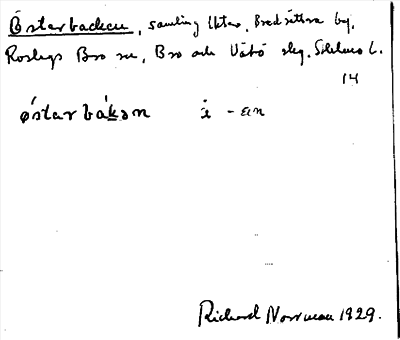 Österbacken, samling lktor, Bredsättra by,
Roslags Bro sn, Bro och Vätö skg. Sthlms l.
14
østarbákan i -an
Richard Norrman 1929.